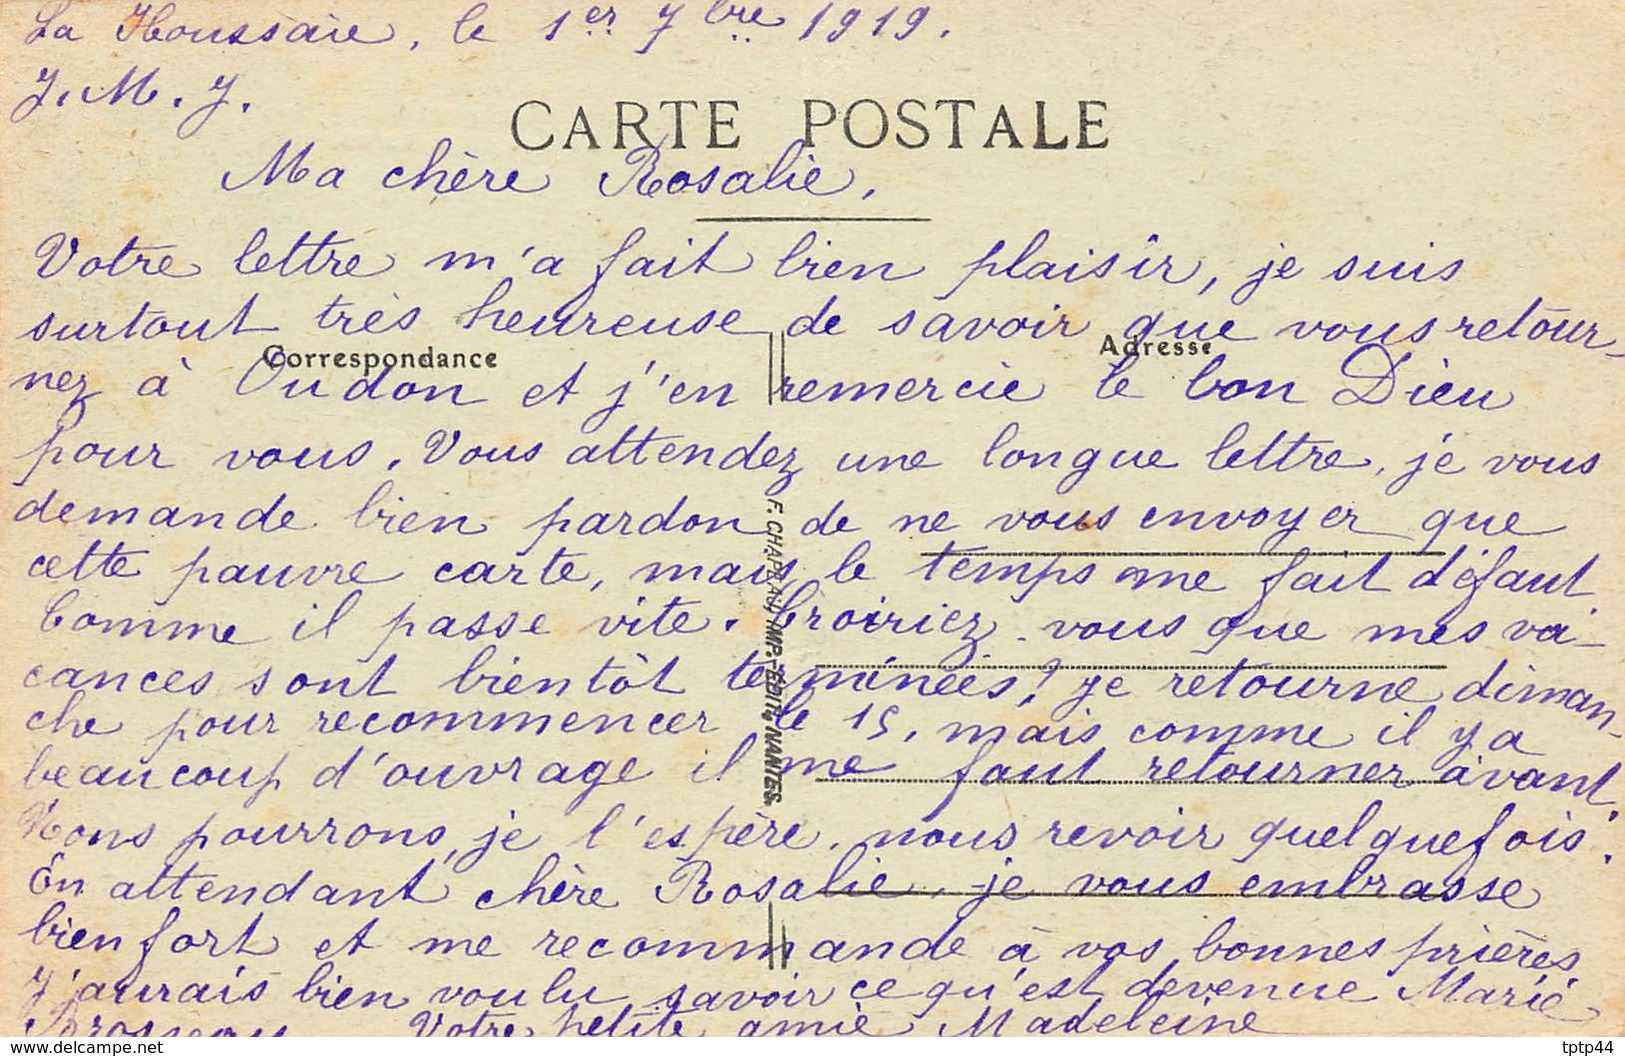 La Houssaie, le 1er 7bre 1919.
J. M. J.
CARTE POSTALE
Ma chère Rosalie,
Votre lettre m'a fait bien plaisir, je suis
surtout très heureuse de savoir que vous retour-
Correspondance
Adresse
nez à Oudon et j'en remercie le bon Dieu
pour vous. Vous attendez une longue lettre, je vous
demande bien pardon de ne vous envoyer que
cette pauvre carte, mais le temps me fait défaut.
Comme il passe vite. Croiriez-vous que mes va-
cances sont bientôt terminées! Je retourne diman-
che pour recommencer le 15, mais comme il y a
beaucoup d'ouvrage il me faut retourner avant.
Nous pourrons, je l'espère, nous revoir quelquefois.
En attendant chère Rosalie, je vous embrasse
bien fort et me recommande à vos bonnes prières
J'aurais bien voulu savoir ce qu'est devenue Marie
Votre petite amie Madeleine
F. CHAPEAU, IMP.-ÉDIT., NANTES.
www.delcampe.net
tptp44